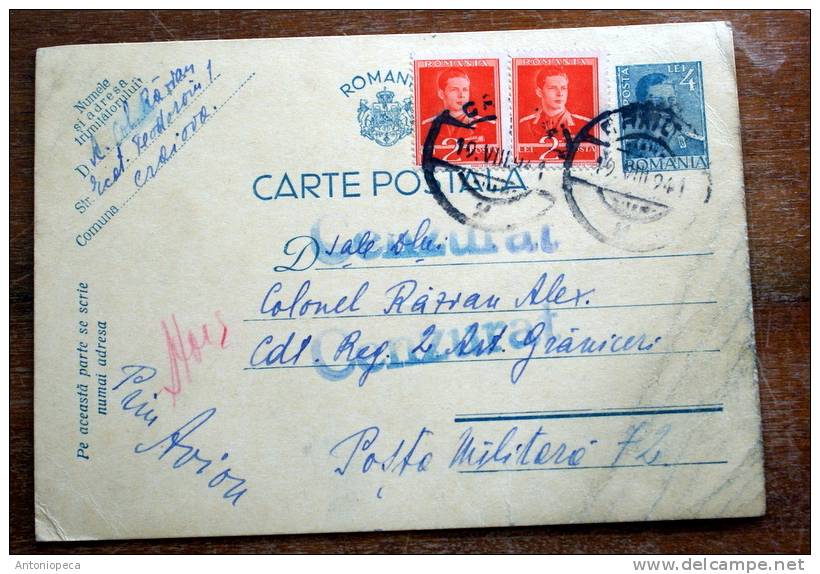 Numele
și adresa
trimițătorului
Răzvan
Str. Ecat. Teodoroiu 1
Comuna Craiova
ROMANIA
ROMANIA
2 LEI POSTA
ROMANIA
LEI 2 POSTA
POSTA LEI 4
ROMÂNIA
19.VIII.941
19.VIII.941
CARTE POSTALA
Cenzurat
Cenzurat
Dsale Dlui
Colonel Răzvan Alex.
Cdt. Reg. 2 Art. Grăniceri
Poșta Militară 72
Pe această parte se scrie
numai adresa
Prin
Avion
Antoniopeca
delcampe.net